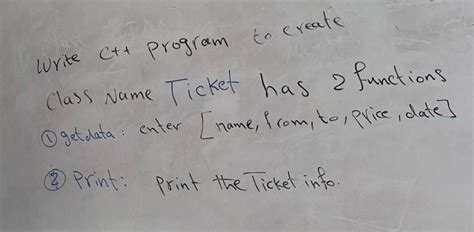 Write C++ program to create
Class Name Ticket has 2 functions
① getdata: enter [name, from, to, price, date]
② Print: Print the Ticket info.